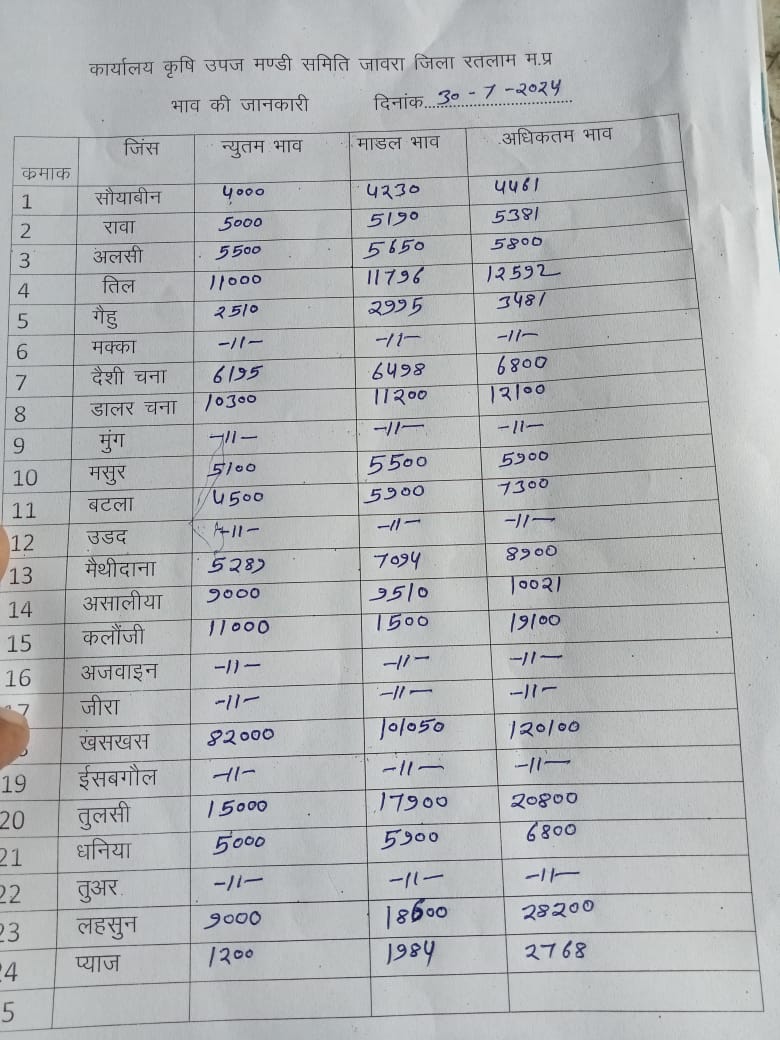 कार्यालय कृषि उपज मण्डी समिति जावरा जिला रतलाम म.प्र
भाव की जानकारी दिनांक...30-7-2024
कमाक जिंस न्युतम भाव माडल भाव अधिकतम भाव
1 सौयाबीन 4000 4230 4461
2 रावा 5000 5190 5381
3 अलसी 5500 5650 5800
4 तिल 11000 11796 12592
5 गैहु 2510 2995 3481
6 मक्का -11- -11- -11-
7 दैशी चना 6195 6498 6800
8 डालर चना 10300 11200 12100
9 मुंग -11- -11- -11-
10 मसुर 5100 5500 5900
11 बटला 4500 5900 7300
12 उडद -11- -11- -11-
13 मैथीदाना 5289 7094 8900
14 असालीया 9000 9510 10021
15 कलौंजी 11000 1500 19100
16 अजवाइन -11- -11- -11-
7 जीरा -11- -11- -11-
खसखस 82000 101050 120100
19 ईसबगौल -11- -11- -11-
20 तुलसी 15000 17900 20800
21 धनिया 5000 5900 6800
22 तुअर -11- -11- -11-
23 लहसुन 9000 18600 28200
24 प्याज 1200 1984 2768
5